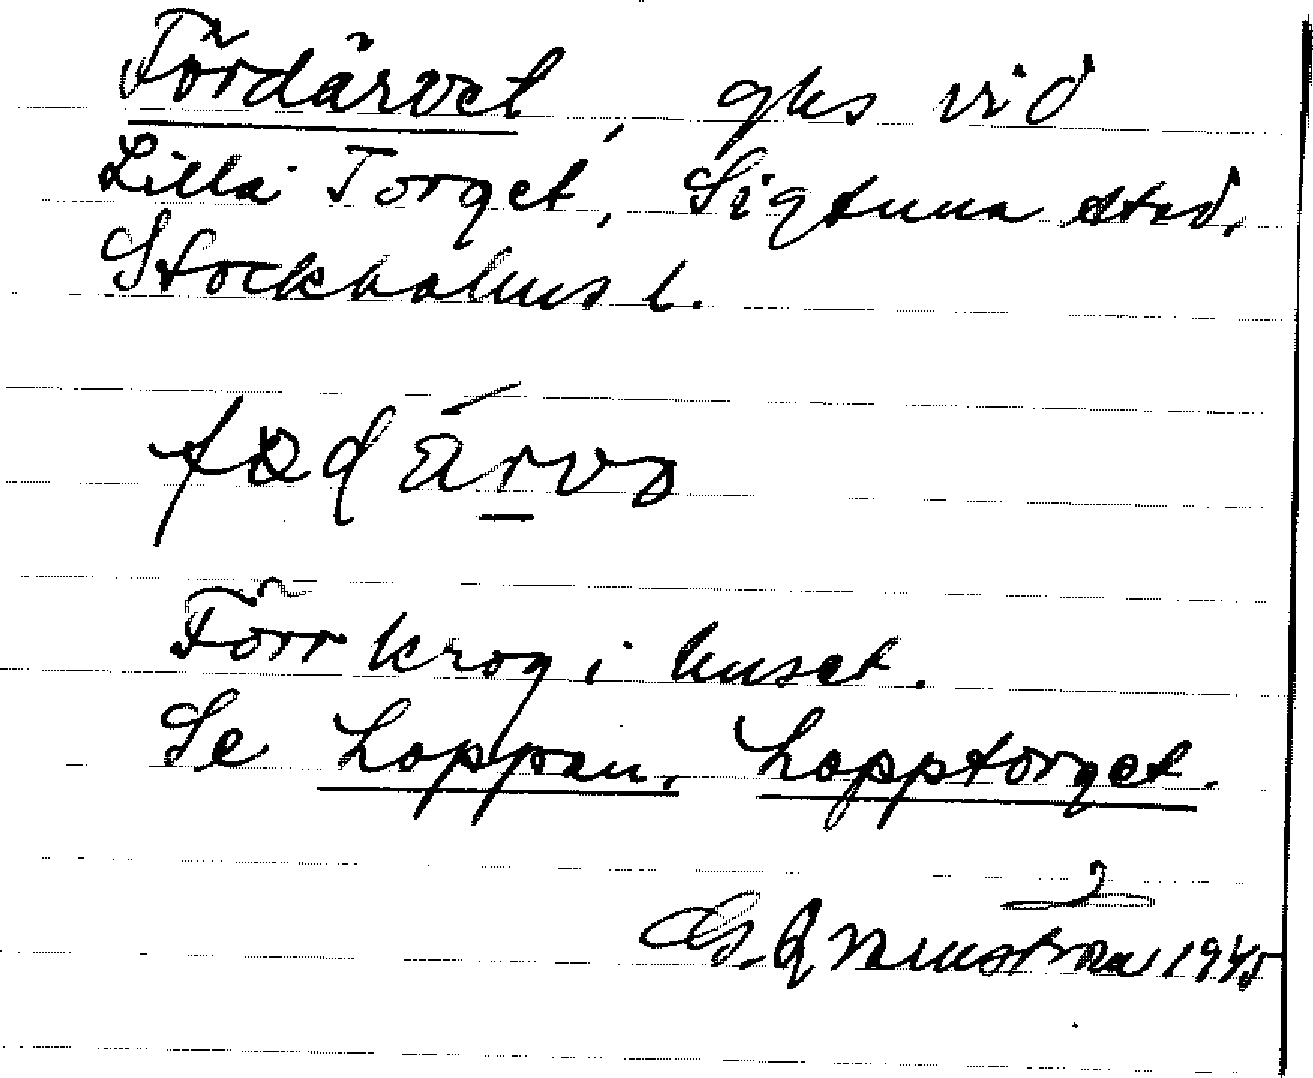 Fördärvet, ghs vid
Lilla Torget, Sigtuna stad.
Stockholms l.
Förr krog i huset.
Se Loppan, Lopptorget.
1945